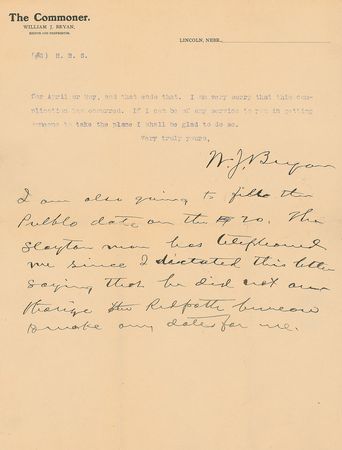 The Commoner.
WILLIAM J. BRYAN,
EDITOR AND PROPRIETOR.
LINCOLN, NEBR.,
H. B. S.
for April or May, and that ends that. I am very sorry that this com-
plication has occurred. If I can be of any service to you in getting
someone to take the place I shall be glad to do so.
Very truly yours,
W. J. Bryan
I am also going to fill the
Pueblo date on the 20. The
Slayton man has telephoned
me since I dictated this letter
saying that he did not au-
thorize the Redpath bureau
to make any dates for me.